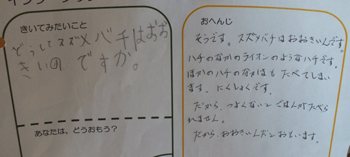 きいてみたいこと
どうしてスズメバチはおお
きいの ですか。
あなたは、どうおもう？
おへんじ
そうです。スズメバチはおおきいんです。
ハチのなかのライオンのようなハチです。
ほかのハチのなかまも たべてしまい
ます。にくしょくです。
だから、つよくないと ごはんがたべら
れません。
だから おおきいんだとおもいます。